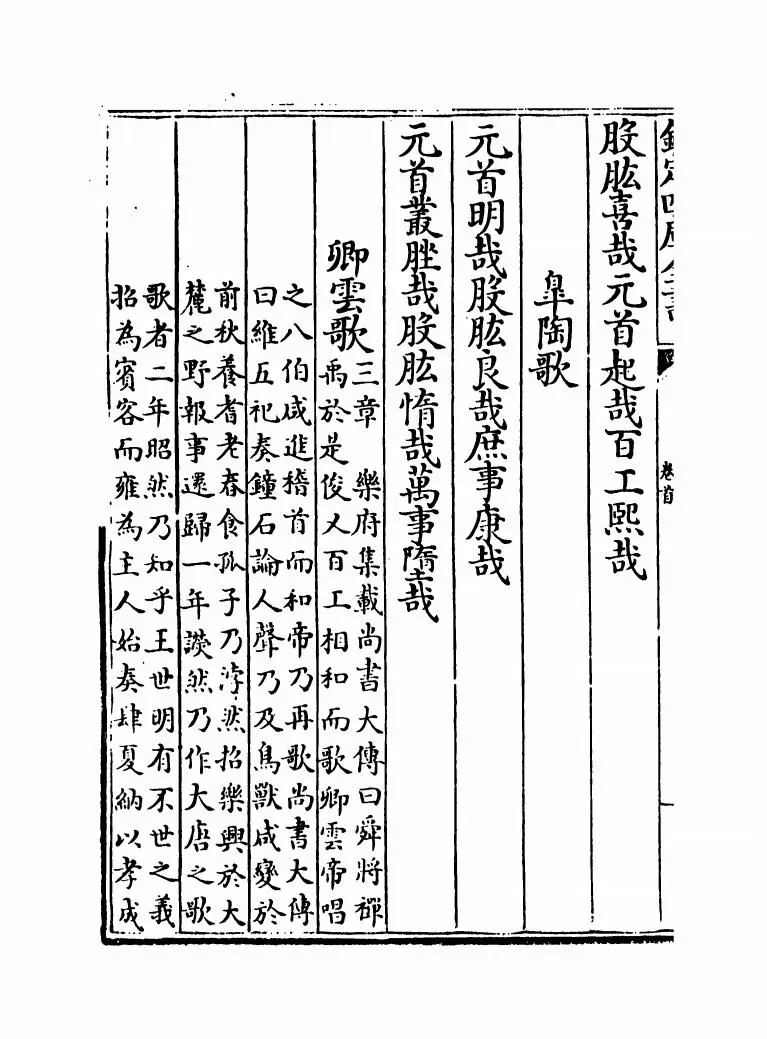 欽定四庫全書
卷首
股肱喜哉元首起哉百工熙哉
臯陶歌
元首明哉股肱良哉庶事康哉
元首叢脞哉股肱惰哉萬事隳哉
卿雲歌三章 樂府集載尚書大傳曰舜將禪
禹於是俊乂百工相和而歌卿雲帝唱
之八伯咸進稽首而和帝乃再歌尚書大傳
曰維五祀奏鐘石論人聲乃及鳥獸咸變於
前秋養耆老春食孤子乃浡然招樂興於大
麓之野報事還歸一年讙然乃作大唐之歌
歌者二年昭然乃知乎王世明有不世之義
招為賓客而雍為主人始奏肆夏納以孝成